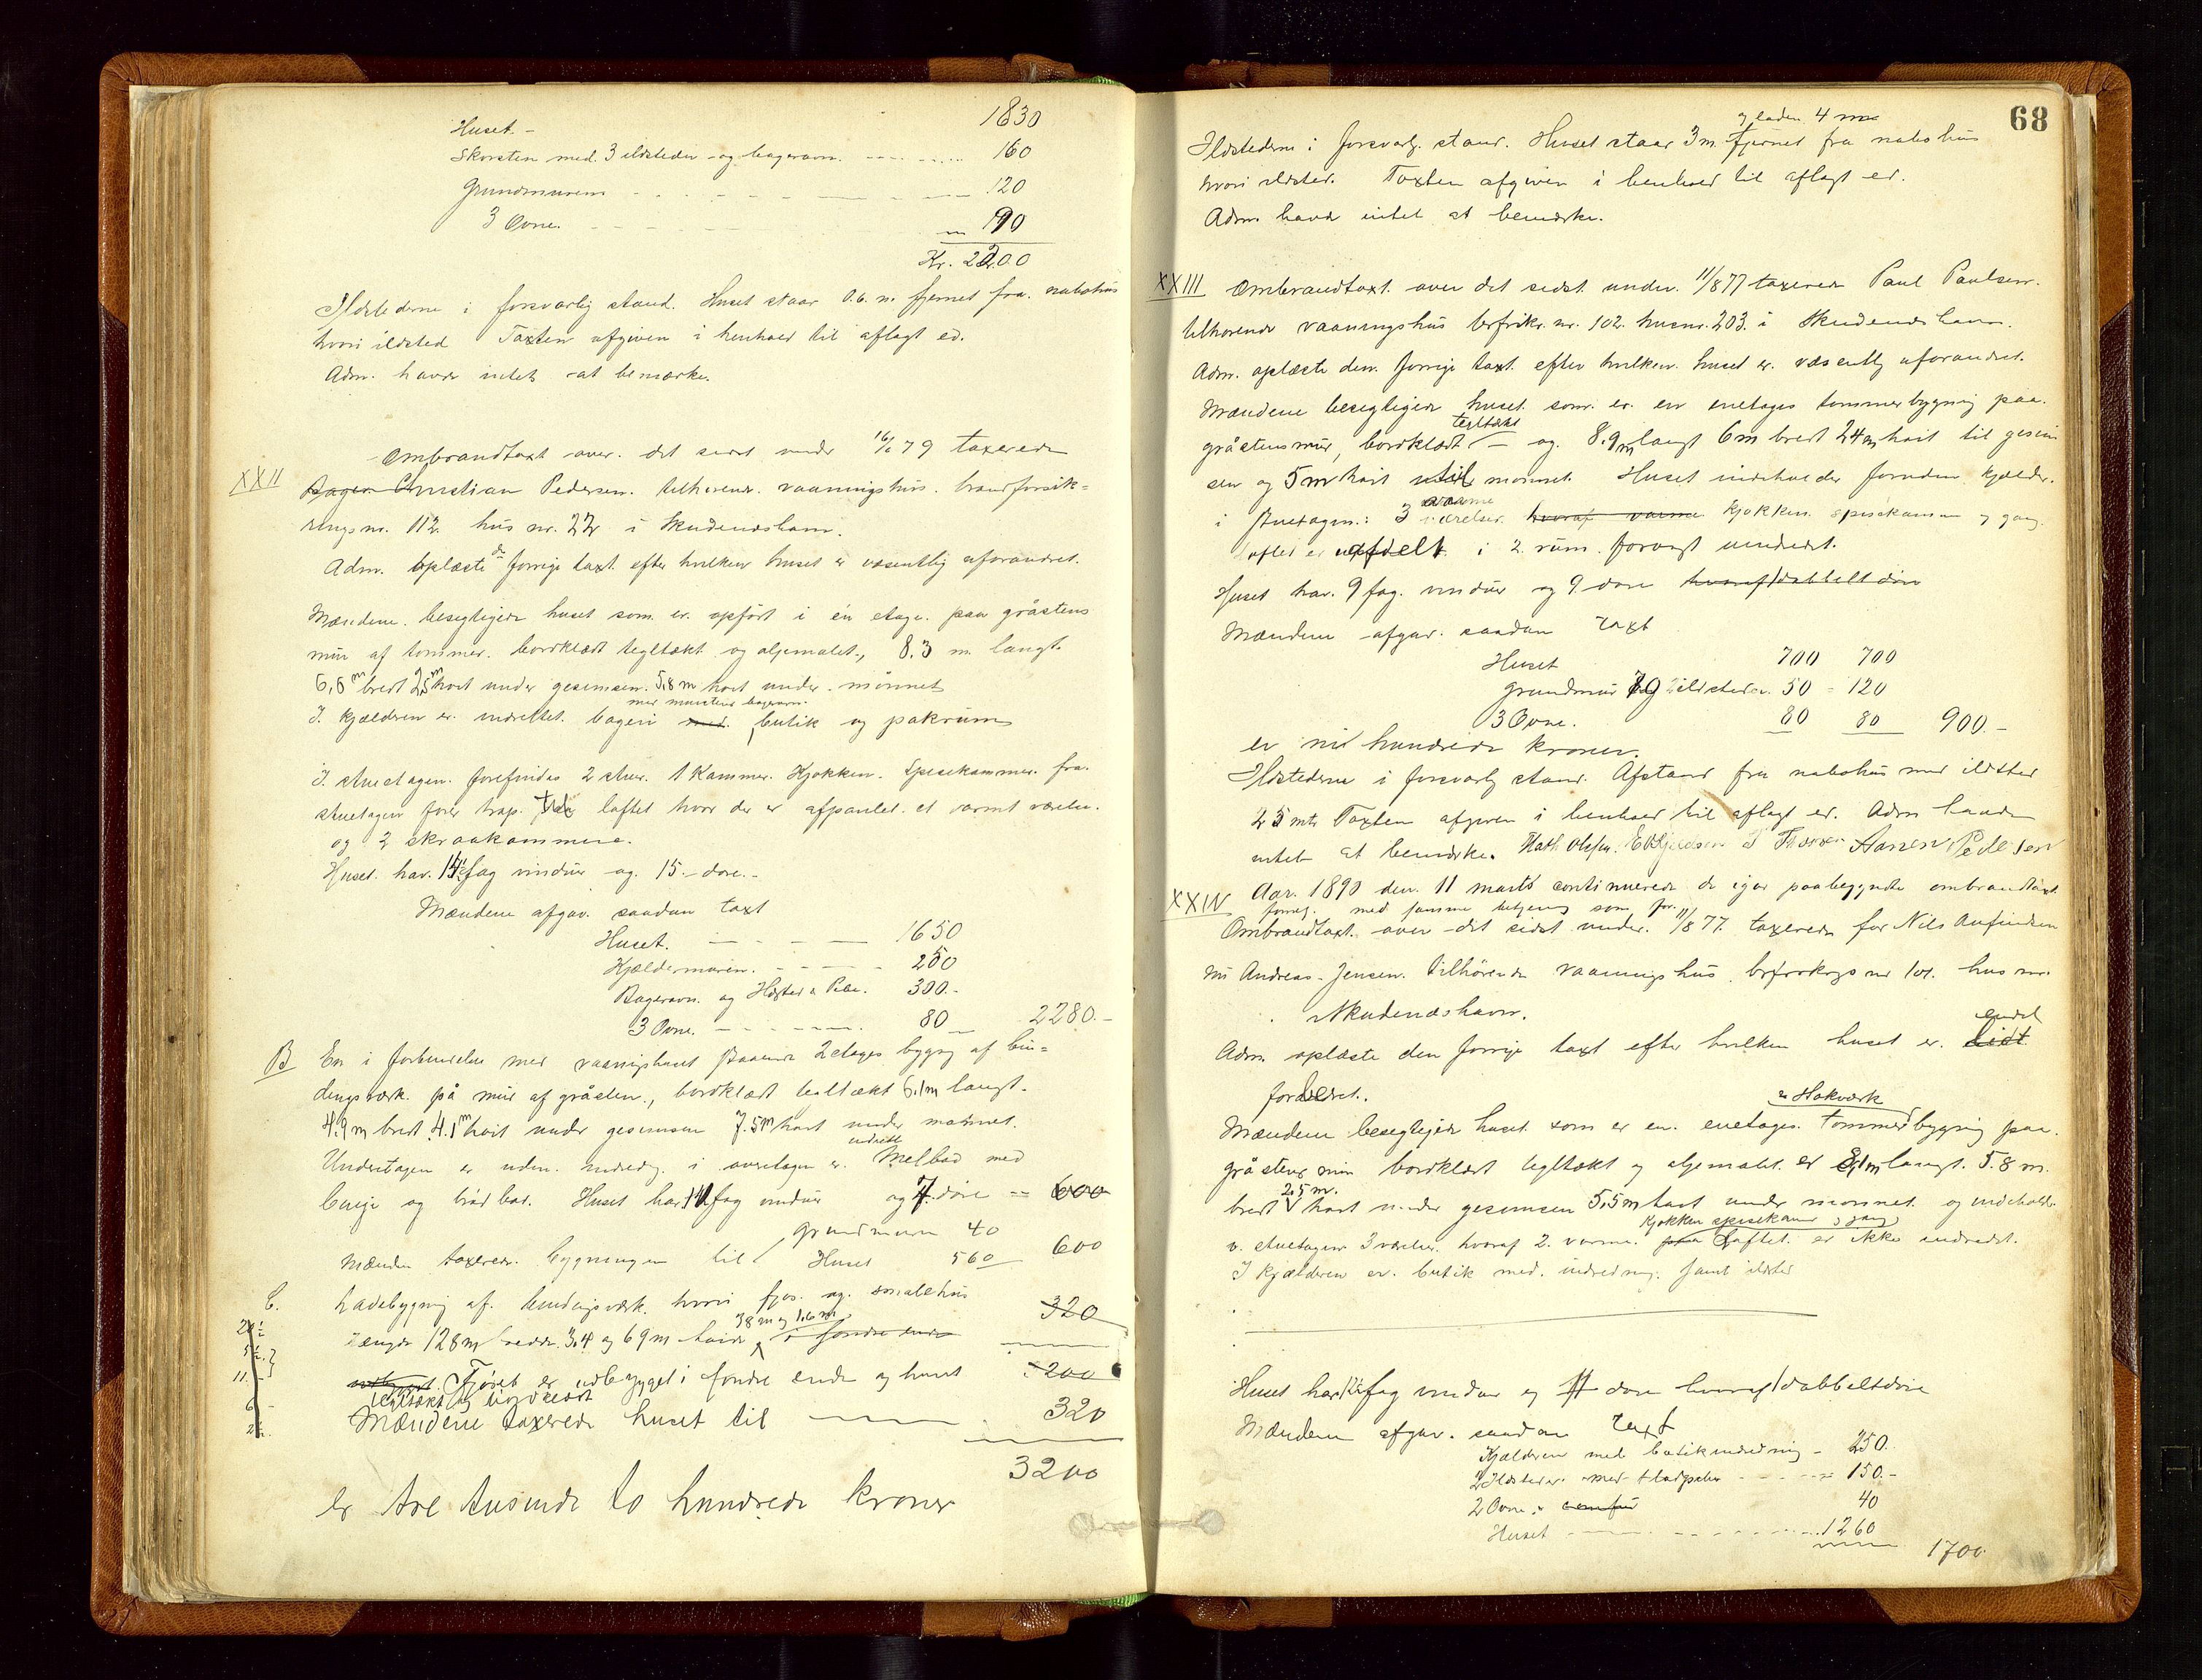 Huset. - 1830
Skorsten med. 3 ildsteder og bagerovn. 160
Grundmuren 120
3 Ovne. 90
Kr. 2200
Ildstederne i forsvarlig stand. Huset staar 0.6. m. fjernet fra. nabohus
hvori ildsted Taxten afgiven i henhold til aflagt ed.
Adm. havde intet at bemærke.
XXII
Ombrandtaxt over. det sidst under 16/6 79 taxerede
Bager Christian Pedersen. tilhørende. vaaningshus. brandforsik-
ringsnr. 112. hus nr. 22 i Skudeneshavn.
Adm. oplæste de forrige taxt. efter hvilken huset er væsentlig uforandret.
Mændene. besegtigede huset som er. opført i én etage. paa gråstens
mur af tømmer. bordklædt tegltækt og oljemalet, 8.3 m. langt
6,6 m bredt 2,5 m høit under gesimsen. 5.8 m høit under mønnet
med muret bagerovn.
I. kjælderen er. indrettet. bageri med. butik og pakrum
I. stuetagen. forefindes 2 stuer. 1 Kammer. Kjøkken. Spisekammer. fra.
stuetagen fører trap. til loftet hvor der er afpanlet. et varmt værelse.
og 2 skraakammere.
Huset. har. 14 fag vinduer og. 15. døre. -
Mændene afgav. saadan taxt
Huset. 1650
Kjældermuren. 250
Bagerovn. og Ildsted & Pibe. 300.-
3 Ovne. 80 2280.-
B En i forbindelse med vaaningshuset staaende 2 etages bygng af bin=
dingsværk. på mur af gråsten., bordklædt tegltækt 6.1m langt.
4.9 m bredt 4.1 m høit under gesimsen 7.5 m høit under mønnet.
indrett
Underetagen er uden. indredng. i overetagen er. Melbod med
binge og brødbod. Huset har 14 fag vinduer og 7. døre = 600
grundmuren 40
Mændene taxerede. bygningen til Huset 560 600
C. Ladebygning af. bindingsværk. hvori fjøs. og. smalehus 320
38 m og 1.6 m
Længde 128m bredde. 3.4 og 69m høide i søndre ende
Fjøset er udbygget i søndre ende og huset 200
tegltækt og bordklædt
Mændene taxerede huset til 320
3200
er tre tusinde to hundrede kroner
68
og laden. 4 m
Ildstederne i forsvarlg. stand. Huset staar 3 m. fjernet fra nabohus
hvori ildsted. Taxten afgiven i henhold til aflagt ed.
Adm. havde intet at bemærke.
XXIII Ombrandtaxt. over det sidst. under. 11/8 77 taxerede Paul Paulsen.
tilhørende vaaningshus brfrikr. nr. 102. husnr. 203. i Skudeneshavn.
Adm. oplæste den. forrige taxt. efter hvilken. huset er. væsentlig uforandret.
Mændene besegtigede huset. som. er. en enetages tømmerbygnig paa.
tegltækt
gråstensmur, bordklædt og. 8.9 m langt 6 m bredt 24 m høit til gesim
sen og 5 m høit til mønnet. Huset indeholder foruden kjælder.
varme
i stuetagen.: 3 værelser. hvoraf varme kjøkken. spisekammer og gang.
loftet er afdelt i 2. rum. forøvrigt uindredet.
Huset har. 9 fag. vinduer og 9 døre hvoraf 1 dobbelt dør
Mændene afgav. saadan Taxt
Huset 700 700
Grundmur og 2 ildsteder. 50 - 120
3 Ovne. 80 80 900.-
er ni hundrede kroner.
Ildstederne i forsvarlg stand. Afstand fra nabohus med ildsted
25 mtr Taxten afgiven i henhold til aflagt ed. Adm havde
intet at bemærke. Math Olsen. Aanen Pedersen
XXIV Aar. 1890 den. 11 marts continuerede de igaar paabegyndte ombrandtaxt.
forretn. med samme betjening som før.
Ombrandtaxt. over det sidst under. 11/8 77. taxerede for Nils Anfindsen
nu Andreas Jensen. tilhørende vaaningshus. brforskrgs nr 101. hus nr.
Skudeneshavn.
endel
Adm. oplæste den forrige taxt efter hvilken huset er. lidt
forbedret.
& Stakværk
Mændene besegtigede huset som er en. enetages. Tømmerbygnig paa.
gråstens mur bordklædt tegltækt og oljemalet. er 8,1 m langt. 5.8 m.
25 m.
bredt høit under gesimsen 5.5 m høit under mønnet. og indeholder
kjøkken spisekammer og gang
i. stuetagen 3 værelser. hvoraf 2. varme. paa Loftet. er ikke indredet.
I kjælderen er. butik med. indredning. samt ildsted
Huset har fag vinduer og 11 døre hvoraf 1 dobbeltdøre
Mændene afgav. saadan Taxt
Kjælderen med butikindredning - 250.
2 Ildsteder. med 150.-
2 Ovne. 40
Huset 1260
1700.